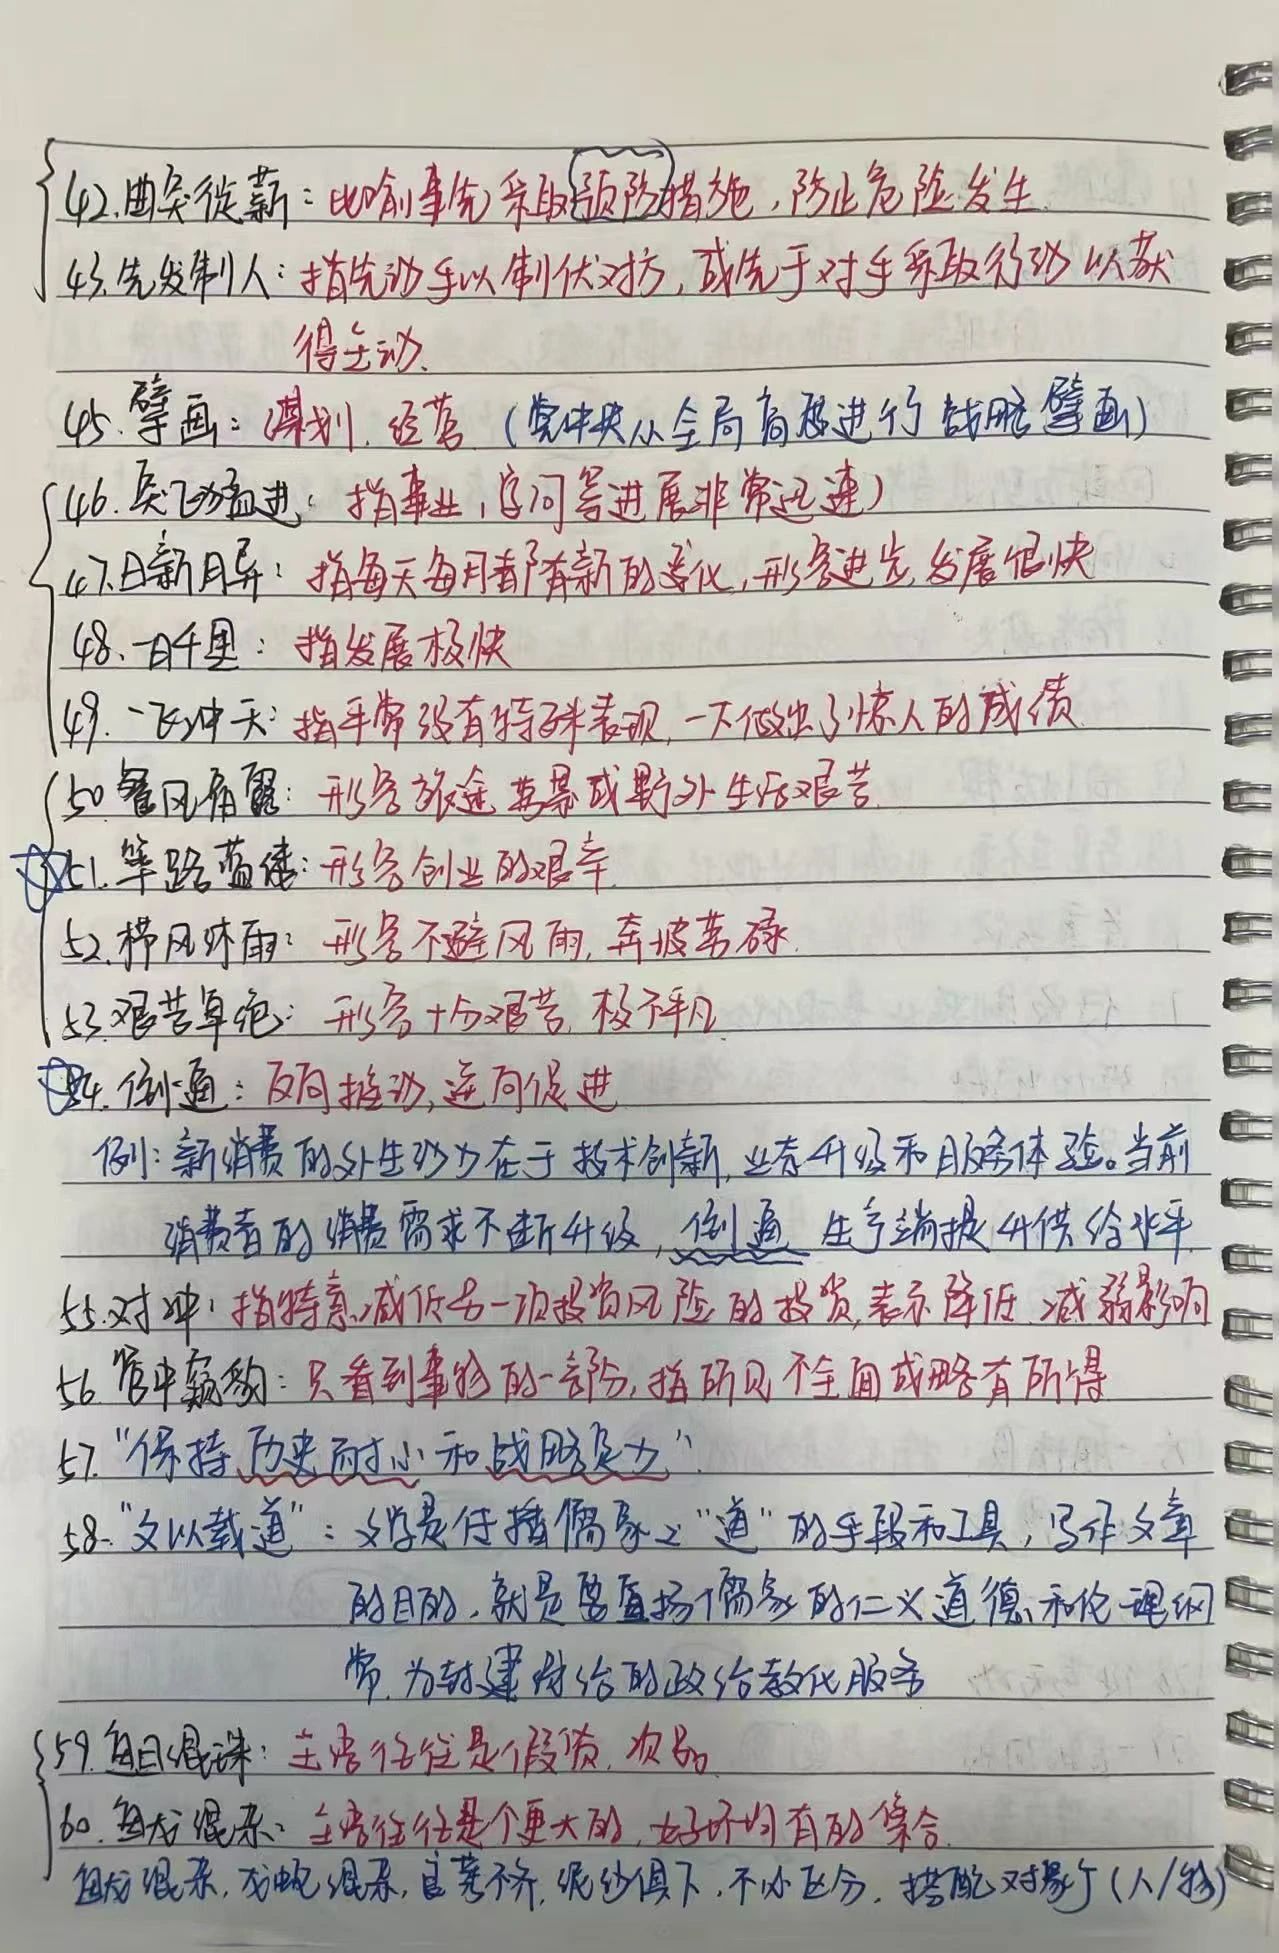 42.曲突徙薪：比喻事先采取预防措施，防止危险发生.
43.先发制人：指先动手以制伏对方，或先于对手采取行动以获
得主动.
45.擘画：谋划.经营（党中央从全局高度进行战略擘画）
46.突飞猛进：指事业,学问等进展非常迅速）
47.日新月异：指每天每月都有新的变化,形容进步,发展很快
48.一日千里：指发展极快
49.一飞冲天：指平常没有特殊表现,一下做出了惊人的成绩.
50.餐风宿露：形容旅途劳累或野外生活艰苦.
51.筚路蓝缕：形容创业的艰辛.
52.栉风沐雨：形容不避风雨,奔波劳碌.
53.艰苦卓绝：形容十分艰苦,极不平凡.
54.倒逼：反向推动,逆向促进.
例：新消费的外生动力在于技术创新,业态升级和服务体验。当前
消费者的消费需求不断升级,倒逼生产端提升供给水平.
55.对冲：指特意减低另一项投资风险的投资,表示降低.减弱影响
56.管中窥豹：只看到事物的一部分,指所见不全面或略有所得
57.“保持历史耐心和战略定力”.
58.“文以载道”：文学是传播儒家之“道”的手段和工具，写作文章
的目的，就是要宣扬儒家的仁义道德和伦理纲
常.为封建统治的政治教化服务
59.鱼目混珠：主语往往是假货.次品.
60.鱼龙混杂：主语往往是个更大的,好坏均有的集合.
鱼龙混杂,龙蛇混杂,良莠不齐,泥沙俱下,不必区分.搭配对象广(人/物)